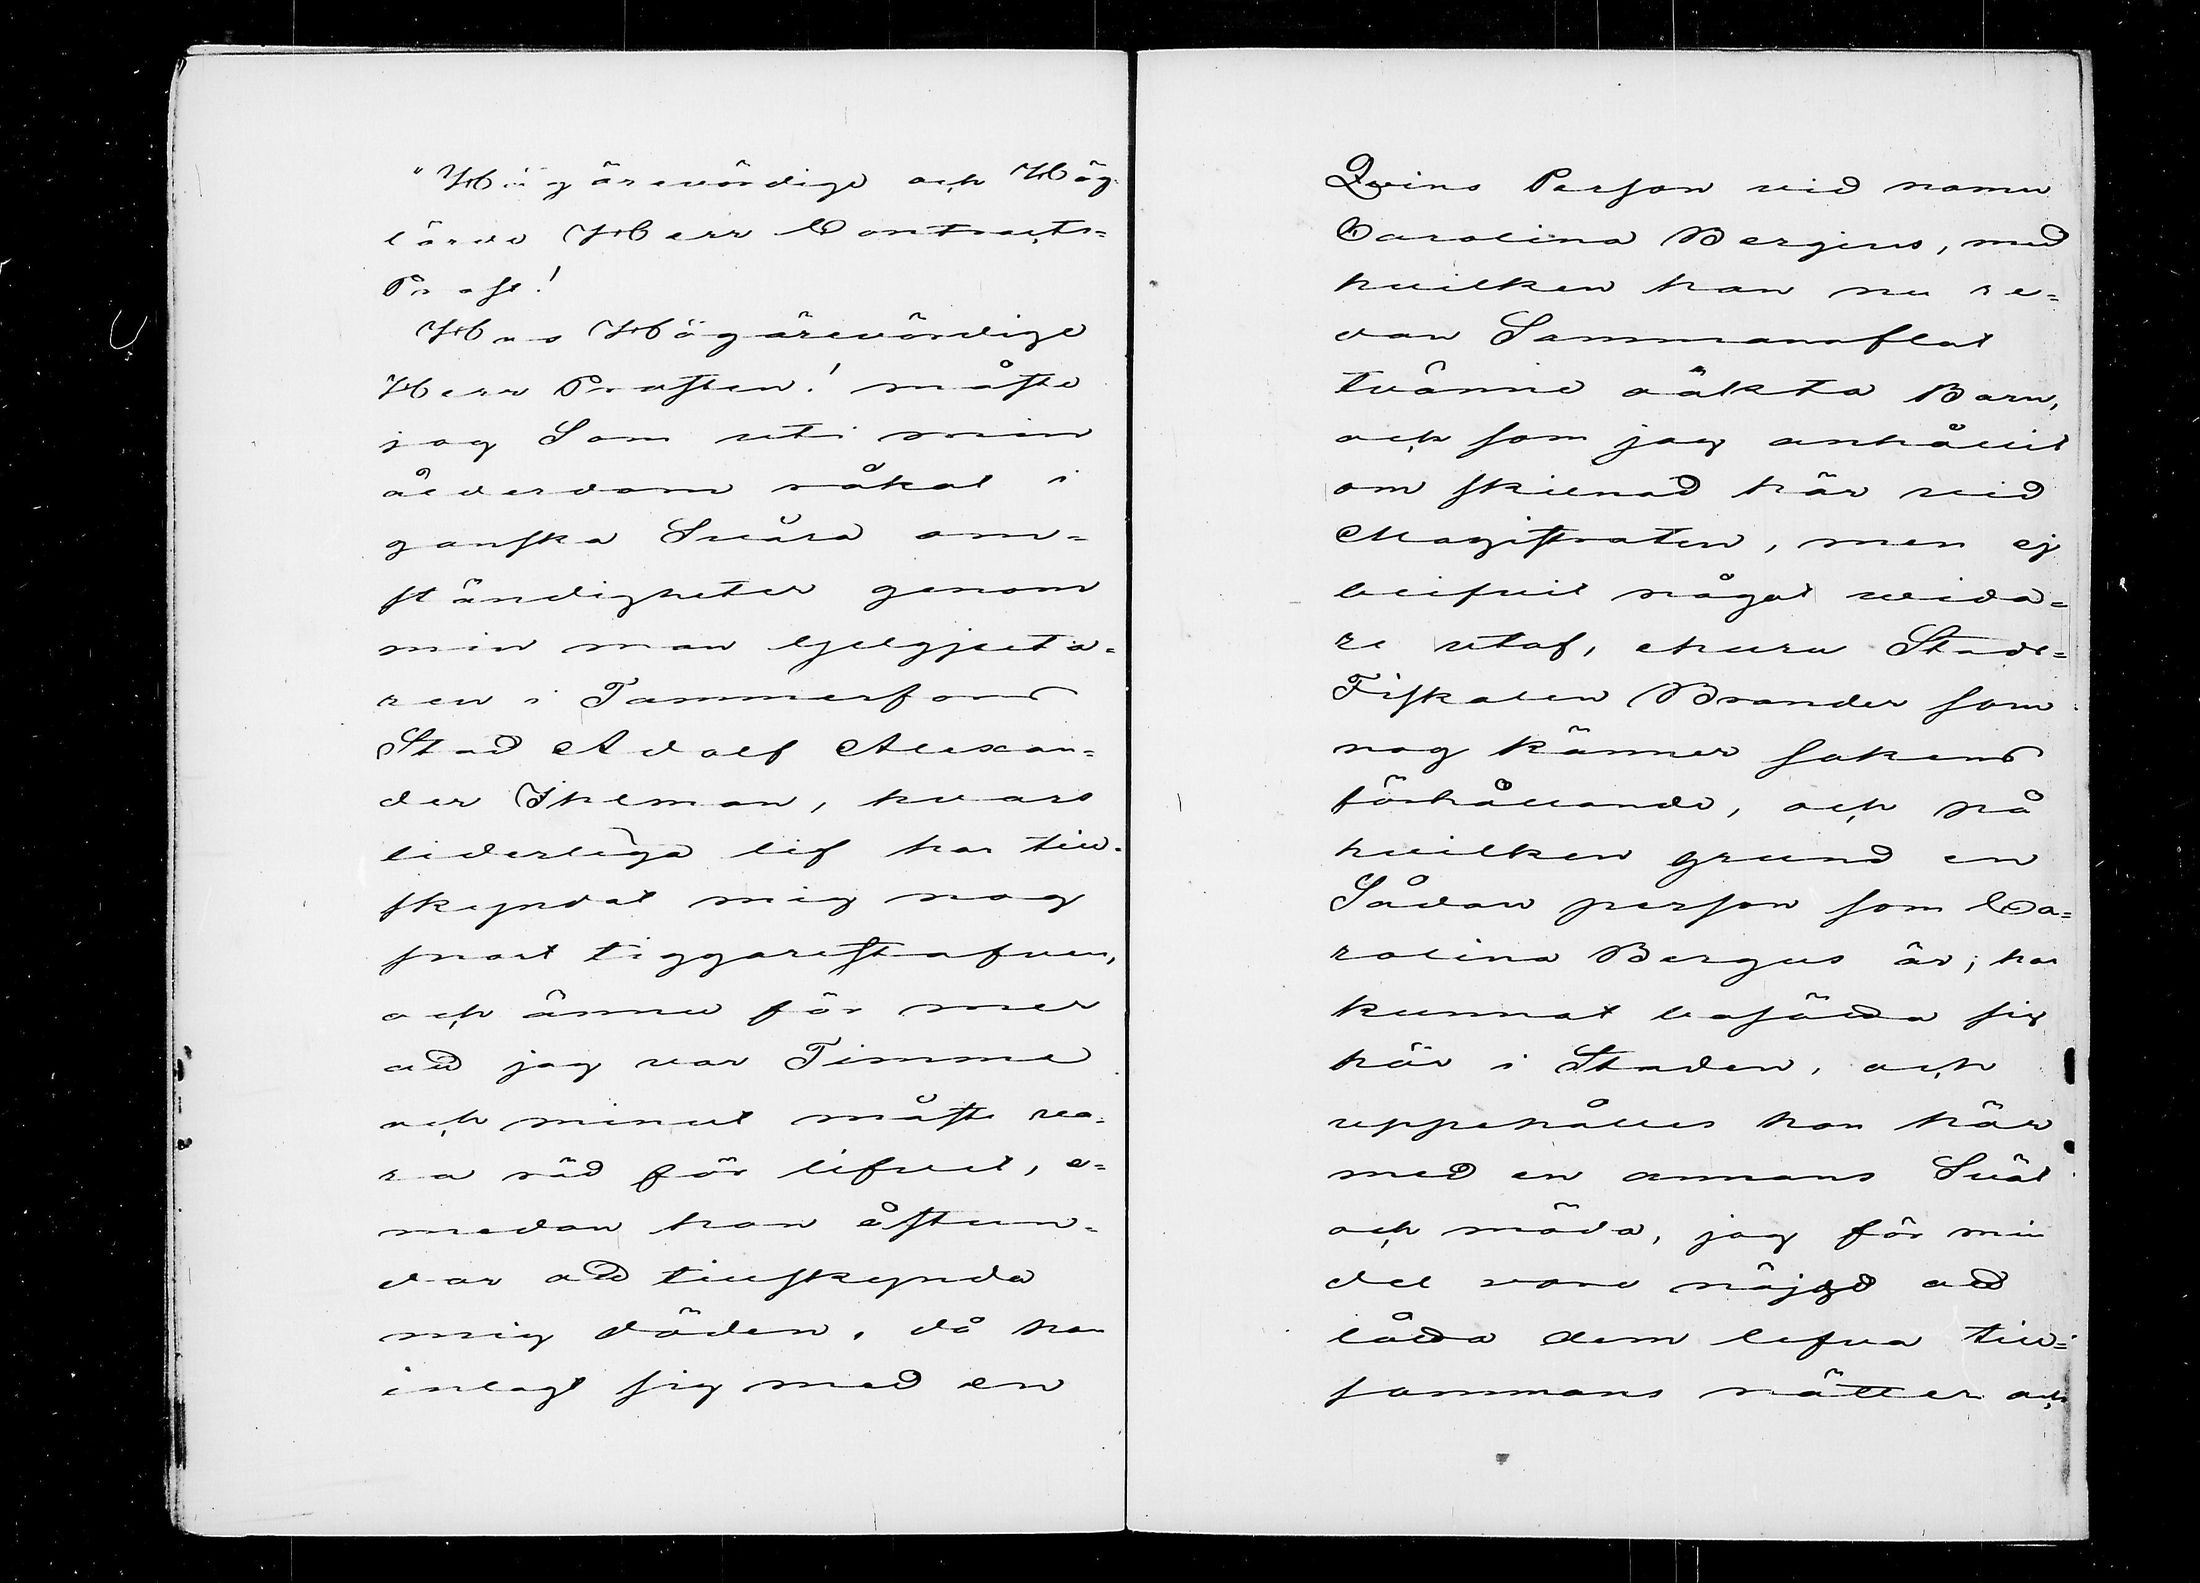 "Högärevördige och Hög
lärde Herr Contracts=
Prost!
Hos Högärevördige
Herr Prosten! måste
jag Som uti min
ålderdom råkat i
ganska Svåra om=
ständigheter genom
min man Gjelgjuta=
ren i Tammerfors
Stad Adolf Alexan=
der Ikleman, hvars
liderliga lif har till=
skyndat mig nog
snart tiggarestafven,
och ännu för mer
add jag var Timme
och minut måste va=
ra räd för lifvet, e=
medan han åstun=
dar add tillskynda
mig döden, då han
inlagt sig med en
Qvins Person vid namn
Carolina Bergius, med
hvilken han nu re=
dan Sammanaflat
tvänne oäkta Barn,
och som jag anhållit
om skilnad här vid
Magistraten, men ej
blifvit något vida=
re utaf, ehuru Stads=
Fiskalen Brander som
nog känner sakens
förhållande, och på
hvilken grund en
Sådan person som Ca=
rolina Bergus är, har
kunnat bosädda sig
här i Staden, och
uppehålles han här
med en annans Svät
och möda, jag för min
del vore nöjgd add
lådda dem lefva till=
sammans nätter och